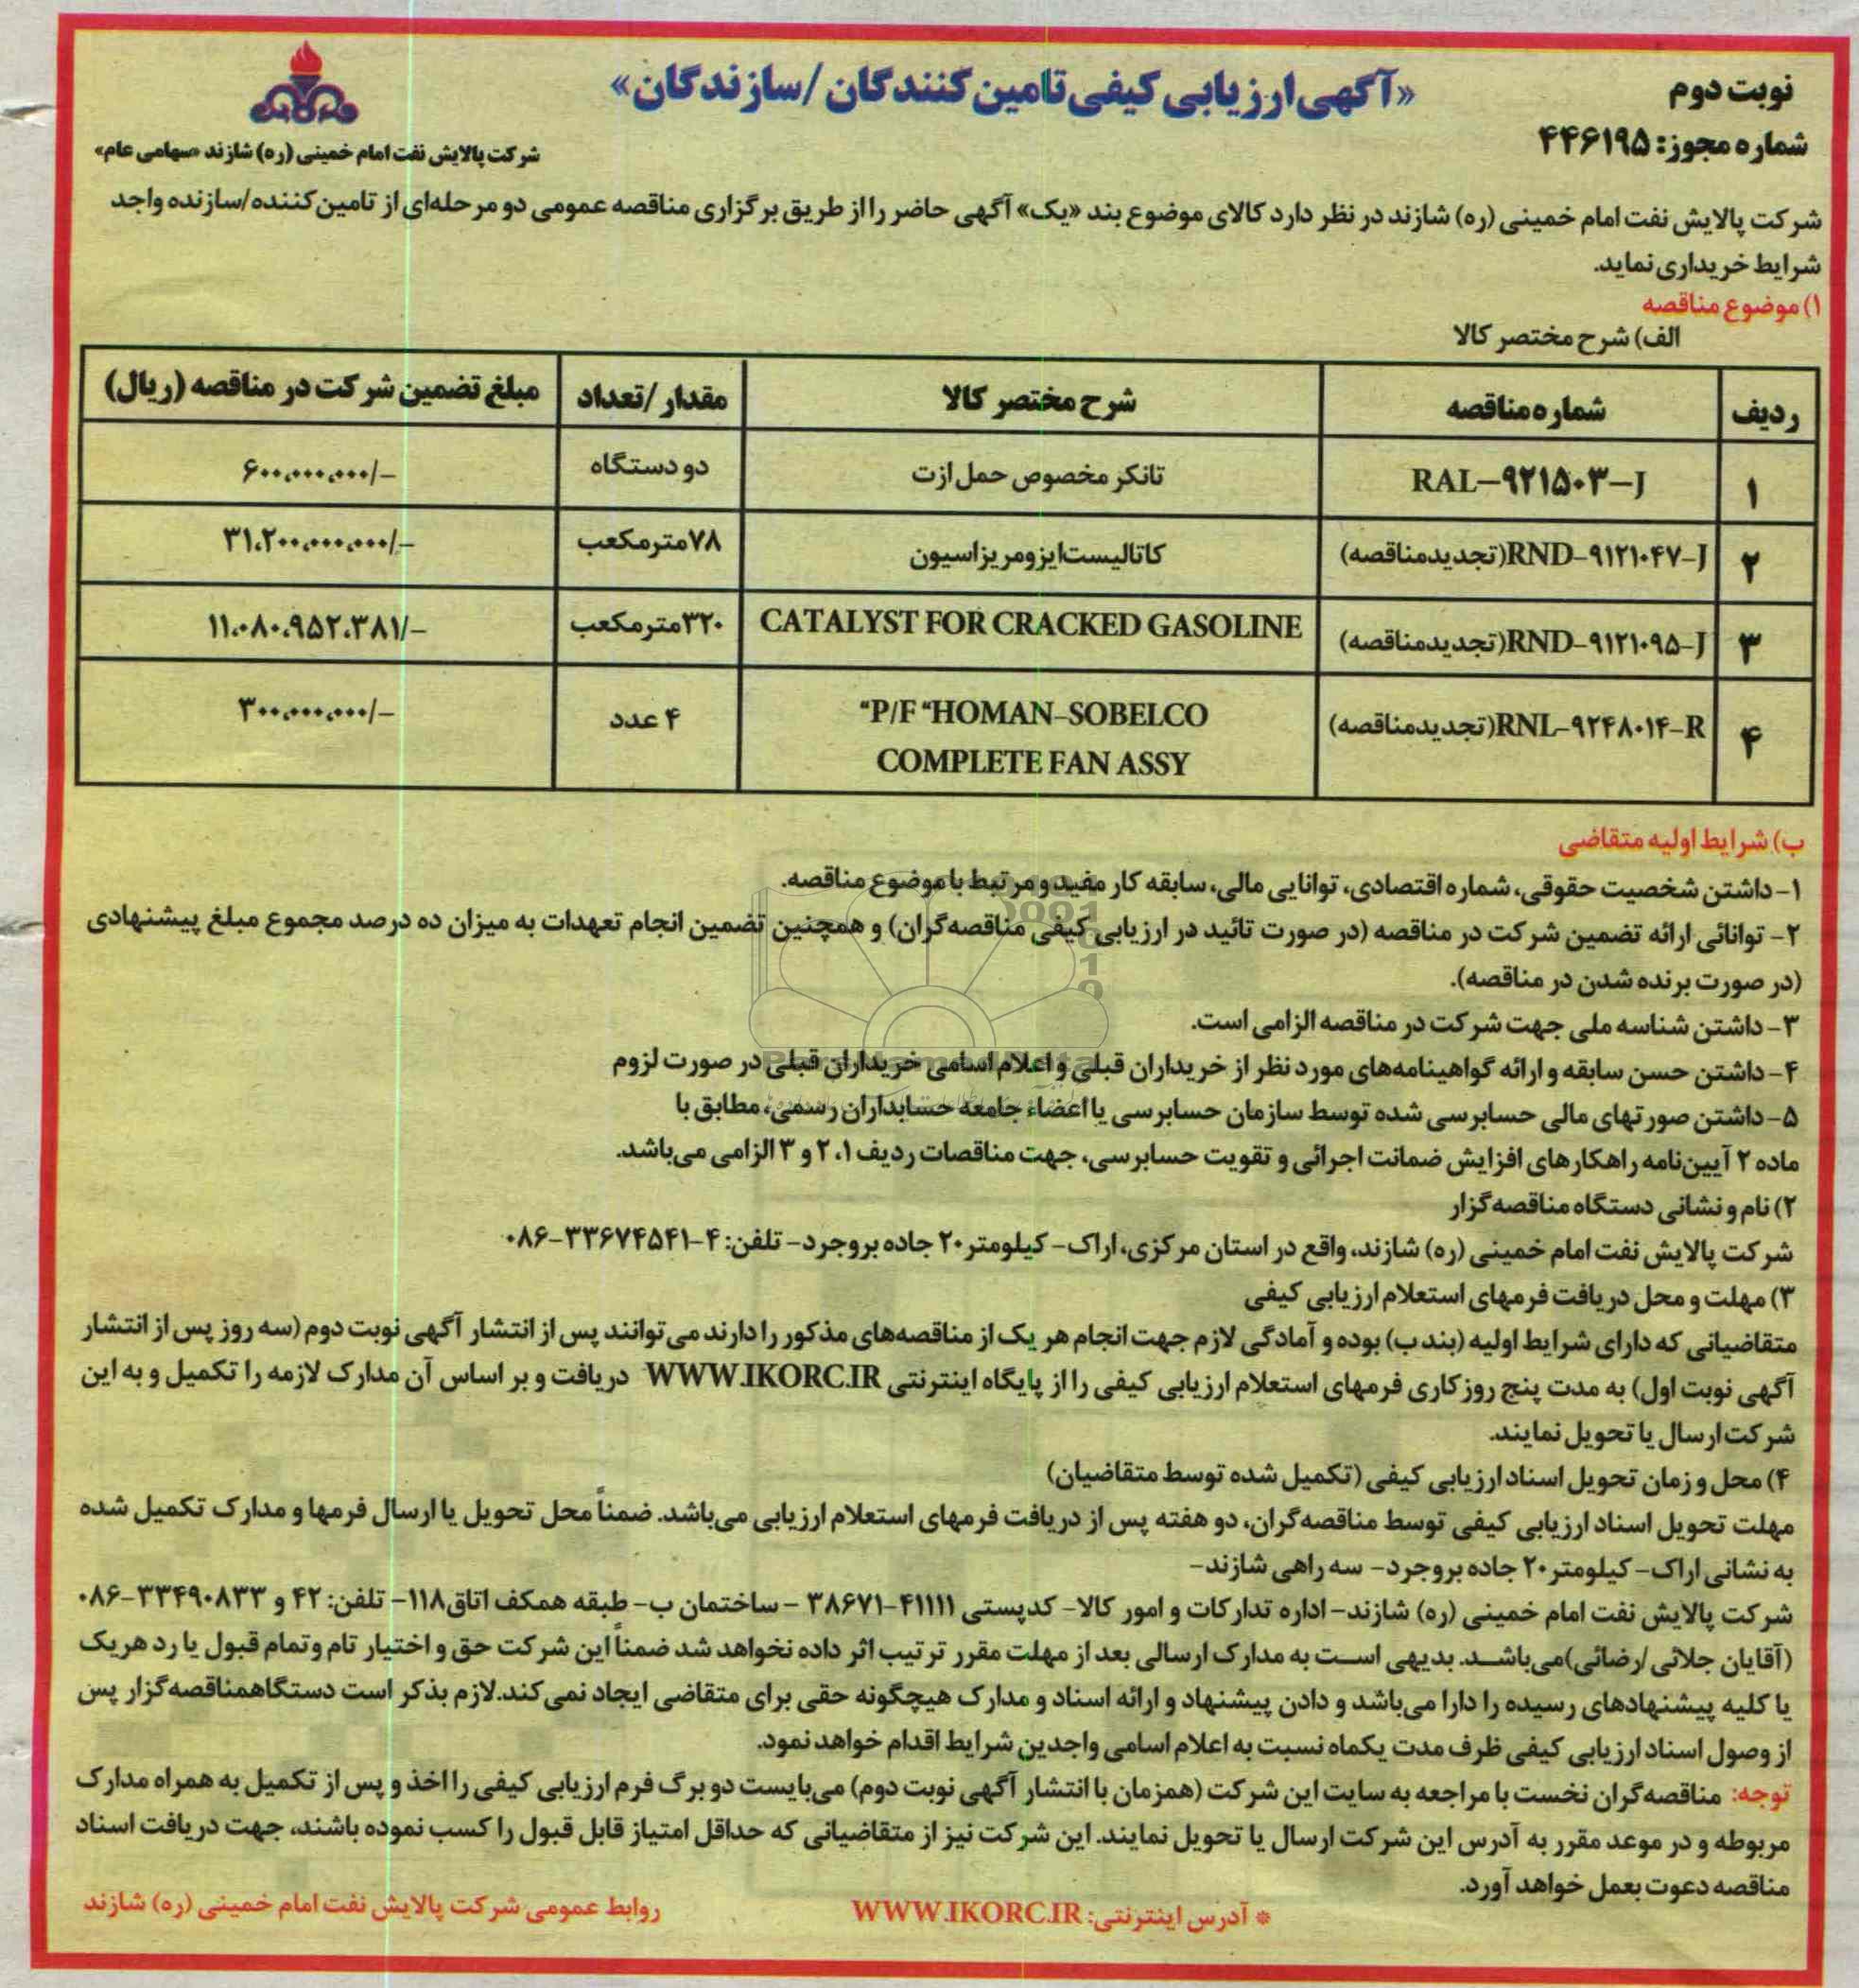 نوبت دوم
«آگهی ارزیابی کیفی تامین کنندگان /سازندگان»
شماره مجوز: ۴۴۶۱۹۵
شرکت پالایش نفت امام خمینی (ره) شازند «سهامی عام»
شرکت پالایش نفت امام خمینی (ره) شازند در نظر دارد کالای موضوع بند «یک» آگهی حاضر را از طریق برگزاری مناقصه عمومی دو مرحله‌ای از تامین کننده/سازنده واجد
شرایط خریداری نماید.
۱) موضوع مناقصه
الف) شرح مختصر کالا
ردیف | شماره مناقصه | شرح مختصر کالا | مقدار /تعداد | مبلغ تضمین شرکت در مناقصه (ریال)
۱ | RAL-۹۲۱۵۰۳-J | تانکر مخصوص حمل ازت | دو دستگاه | ۶۰۰،۰۰۰،۰۰۰/-
۲ | RND-۹۱۲۱۰۴۷-J(تجدیدمناقصه) | کاتالیست ایزومریزاسیون | ۷۸مترمکعب | ۳۱،۲۰۰،۰۰۰،۰۰۰/-
۳ | RND-۹۱۲۱۰۹۵-J(تجدیدمناقصه) | CATALYST FOR CRACKED GASOLINE | ۳۲۰مترمکعب | ۱۱،۰۸۰،۹۵۲،۳۸۱/-
۴ | RNL-۹۲۴۸۰۱۴-R(تجدیدمناقصه) | "P/F "HOMAN-SOBELCO | ۴ عدد | ۳۰۰،۰۰۰،۰۰۰/-
COMPLETE FAN ASSY
ب) شرایط اولیه متقاضی
۱- داشتن شخصیت حقوقی، شماره اقتصادی، توانایی مالی، سابقه کار مفید و مرتبط با موضوع مناقصه.
۲- توانائی ارائه تضمین شرکت در مناقصه (در صورت تائید در ارزیابی کیفی مناقصه‌گران) و همچنین تضمین انجام تعهدات به میزان ده درصد مجموع مبلغ پیشنهادی
(در صورت برنده شدن در مناقصه).
۳- داشتن شناسه ملی جهت شرکت در مناقصه الزامی است.
۴- داشتن حسن سابقه و ارائه گواهینامه‌های مورد نظر از خریداران قبلی و اعلام اسامی خریداران قبلی در صورت لزوم
۵- داشتن صورتهای مالی حسابرسی شده توسط سازمان حسابرسی یا اعضاء جامعه حسابداران رسمی، مطابق با
ماده ۲ آیین‌نامه راهکارهای افزایش ضمانت اجرائی و تقویت حسابرسی، جهت مناقصات ردیف ۱، ۲ و ۳ الزامی می‌باشد.
۲) نام و نشانی دستگاه مناقصه گزار
شرکت پالایش نفت امام خمینی (ره) شازند، واقع در استان مرکزی، اراک- کیلومتر ۲۰ جاده بروجرد- تلفن: ۴-۳۳۶۷۴۵۴۱-۰۸۶
۳) مهلت و محل دریافت فرمهای استعلام ارزیابی کیفی
متقاضیانی که دارای شرایط اولیه (بند ب) بوده و آمادگی لازم جهت انجام هر یک از مناقصه‌های مذکور را دارند می‌توانند پس از انتشار آگهی نوبت دوم (سه روز پس از انتشار
آگهی نوبت اول) به مدت پنج روز کاری فرمهای استعلام ارزیابی کیفی را از پایگاه اینترنتی WWW.IKORC.IR دریافت و بر اساس آن مدارک لازمه را تکمیل و به این
شرکت ارسال یا تحویل نمایند.
۴) محل و زمان تحویل اسناد ارزیابی کیفی (تکمیل شده توسط متقاضیان)
مهلت تحویل اسناد ارزیابی کیفی توسط مناقصه‌گران، دو هفته پس از دریافت فرمهای استعلام ارزیابی می‌باشد. ضمناً محل تحویل یا ارسال فرمها و مدارک تکمیل شده
به نشانی اراک- کیلومتر ۲۰ جاده بروجرد- سه راهی شازند-
شرکت پالایش نفت امام خمینی (ره) شازند- اداره تدارکات و امور کالا- کدپستی ۴۱۱۱۱-۳۸۶۷۱ - ساختمان ب- طبقه همکف اتاق۱۱۸- تلفن: ۴۲ و ۳۳۴۹۰۸۳۳-۰۸۶
(آقایان جلائی/رضائی)می‌باشد. بدیهی است به مدارک ارسالی بعد از مهلت مقرر ترتیب اثر داده نخواهد شد ضمناً این شرکت حق و اختیار تام وتمام قبول یا رد هریک
یا کلیه پیشنهادهای رسیده را دارا می‌باشد و دادن پیشنهاد و ارائه اسناد و مدارک هیچگونه حقی برای متقاضی ایجاد نمی‌کند.لازم بذکر است دستگاهمناقصه‌گزار پس
از وصول اسناد ارزیابی کیفی ظرف مدت یکماه نسبت به اعلام اسامی واجدین شرایط اقدام خواهد نمود.
توجه: مناقصه‌گران نخست با مراجعه به سایت این شرکت (همزمان با انتشار آگهی نوبت دوم) می‌بایست دو برگ فرم ارزیابی کیفی را اخذ و پس از تکمیل به همراه مدارک
مربوطه و در موعد مقرر به آدرس این شرکت ارسال یا تحویل نمایند. این شرکت نیز از متقاضیانی که حداقل امتیاز قابل قبول را کسب نموده باشند، جهت دریافت اسناد
مناقصه دعوت بعمل خواهد آورد.
* آدرس اینترنتی: WWW.IKORC.IR
روابط عمومی شرکت پالایش نفت امام خمینی (ره) شازند